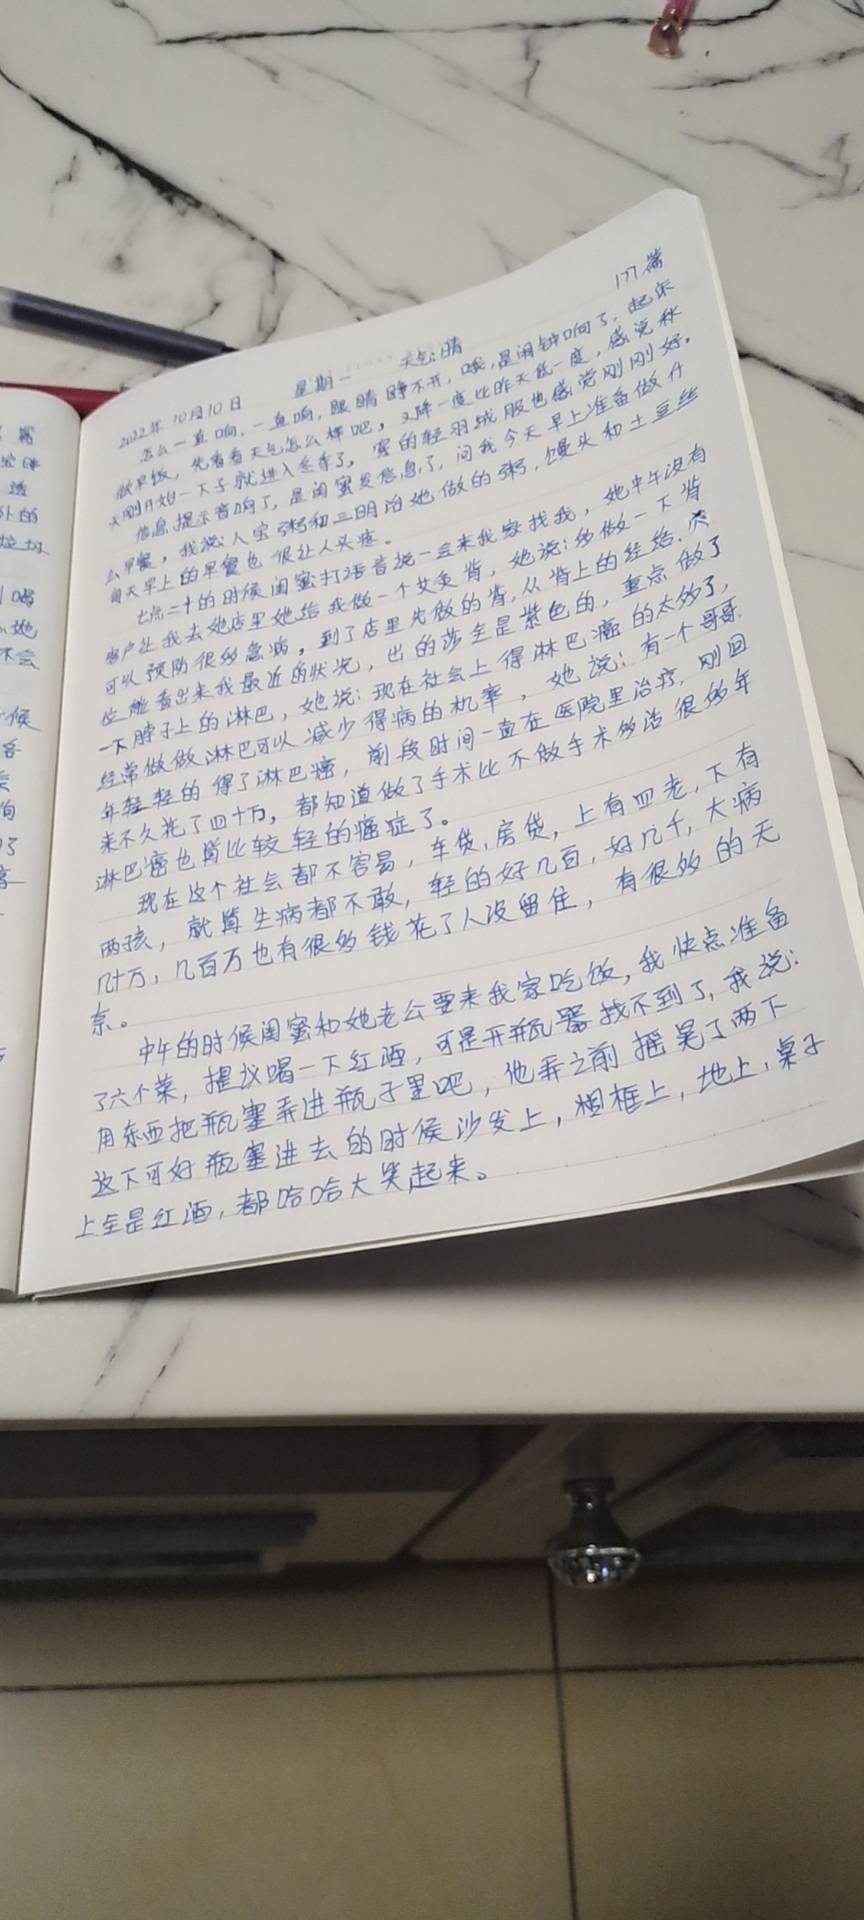 177篇
2022年10月10日 星期一 天气:晴
怎么一直响,一直响,眼睛睁不开,哦,是闹钟响了,起床
做早饭,先看看天气怎么样吧,又降一度比昨天低一度,感觉秋
天刚开始一下子就进入冬季了,穿的轻羽绒服也感觉刚刚好。
信息提示音响了,是闺蜜发信息了,问我今天早上准备做什
么早餐,我说:八宝粥和三明治她做的粥,馒头和土豆丝
每天早上的早餐也很让人头疼。
七点二十的时候闺蜜打语音说一会来我家找我,她中午没有
客户让我去她店里她给我做一个艾灸背,她说:多做一下背
可以预防很多急病,到了店里先做的背,从背上的经络.穴
位她看出来我最近的状况,出的莎全是紫色的,重点做了
一下脖子上的淋巴,她说:现在社会上得淋巴癌的太多了,
经常做做淋巴可以减少得病的机率,她说:有一个哥哥
年轻轻的得了淋巴癌,前段时间一直在医院里治疗,刚回
来不久花了四十万,都知道做了手术比不做手术多活很多年
淋巴癌也算比较轻的癌症了。
现在这个社会都不容易,车贷,房贷,上有四老,下有
两孩,就算生病都不敢,轻的好几百,好几千,大病
几十万,几百万也有很多钱花了人没留住,有很多的无
奈。
中午的时候闺蜜和她老公要来我家吃饭,我快点准备
了六个菜,提议喝一下红酒,可是开瓶器找不到了,我说:
用东西把瓶塞弄进瓶子里吧,他弄之前摇晃了两下
这下可好瓶塞进去的时候沙发上,相框上,地上,桌子
上全是红酒,都哈哈大笑起来。